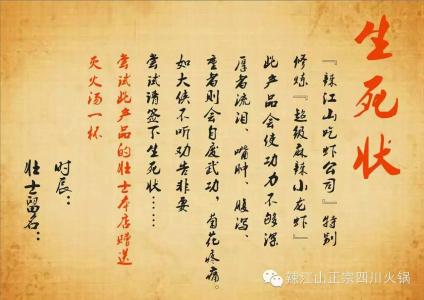 生死状
『辣江山吃虾公司』特别
修炼『超级麻辣小龙虾』
此产品会使功力不够深
厚者流泪、嘴肿、腹泻、
重者则会自废武功，菊花疼痛。
如大侠不听劝告非要
尝试请签下生死状……
尝试此产品的壮士本店赠送
灭火汤一杯
时辰：
壮士留名：
辣江山正宗四川火锅